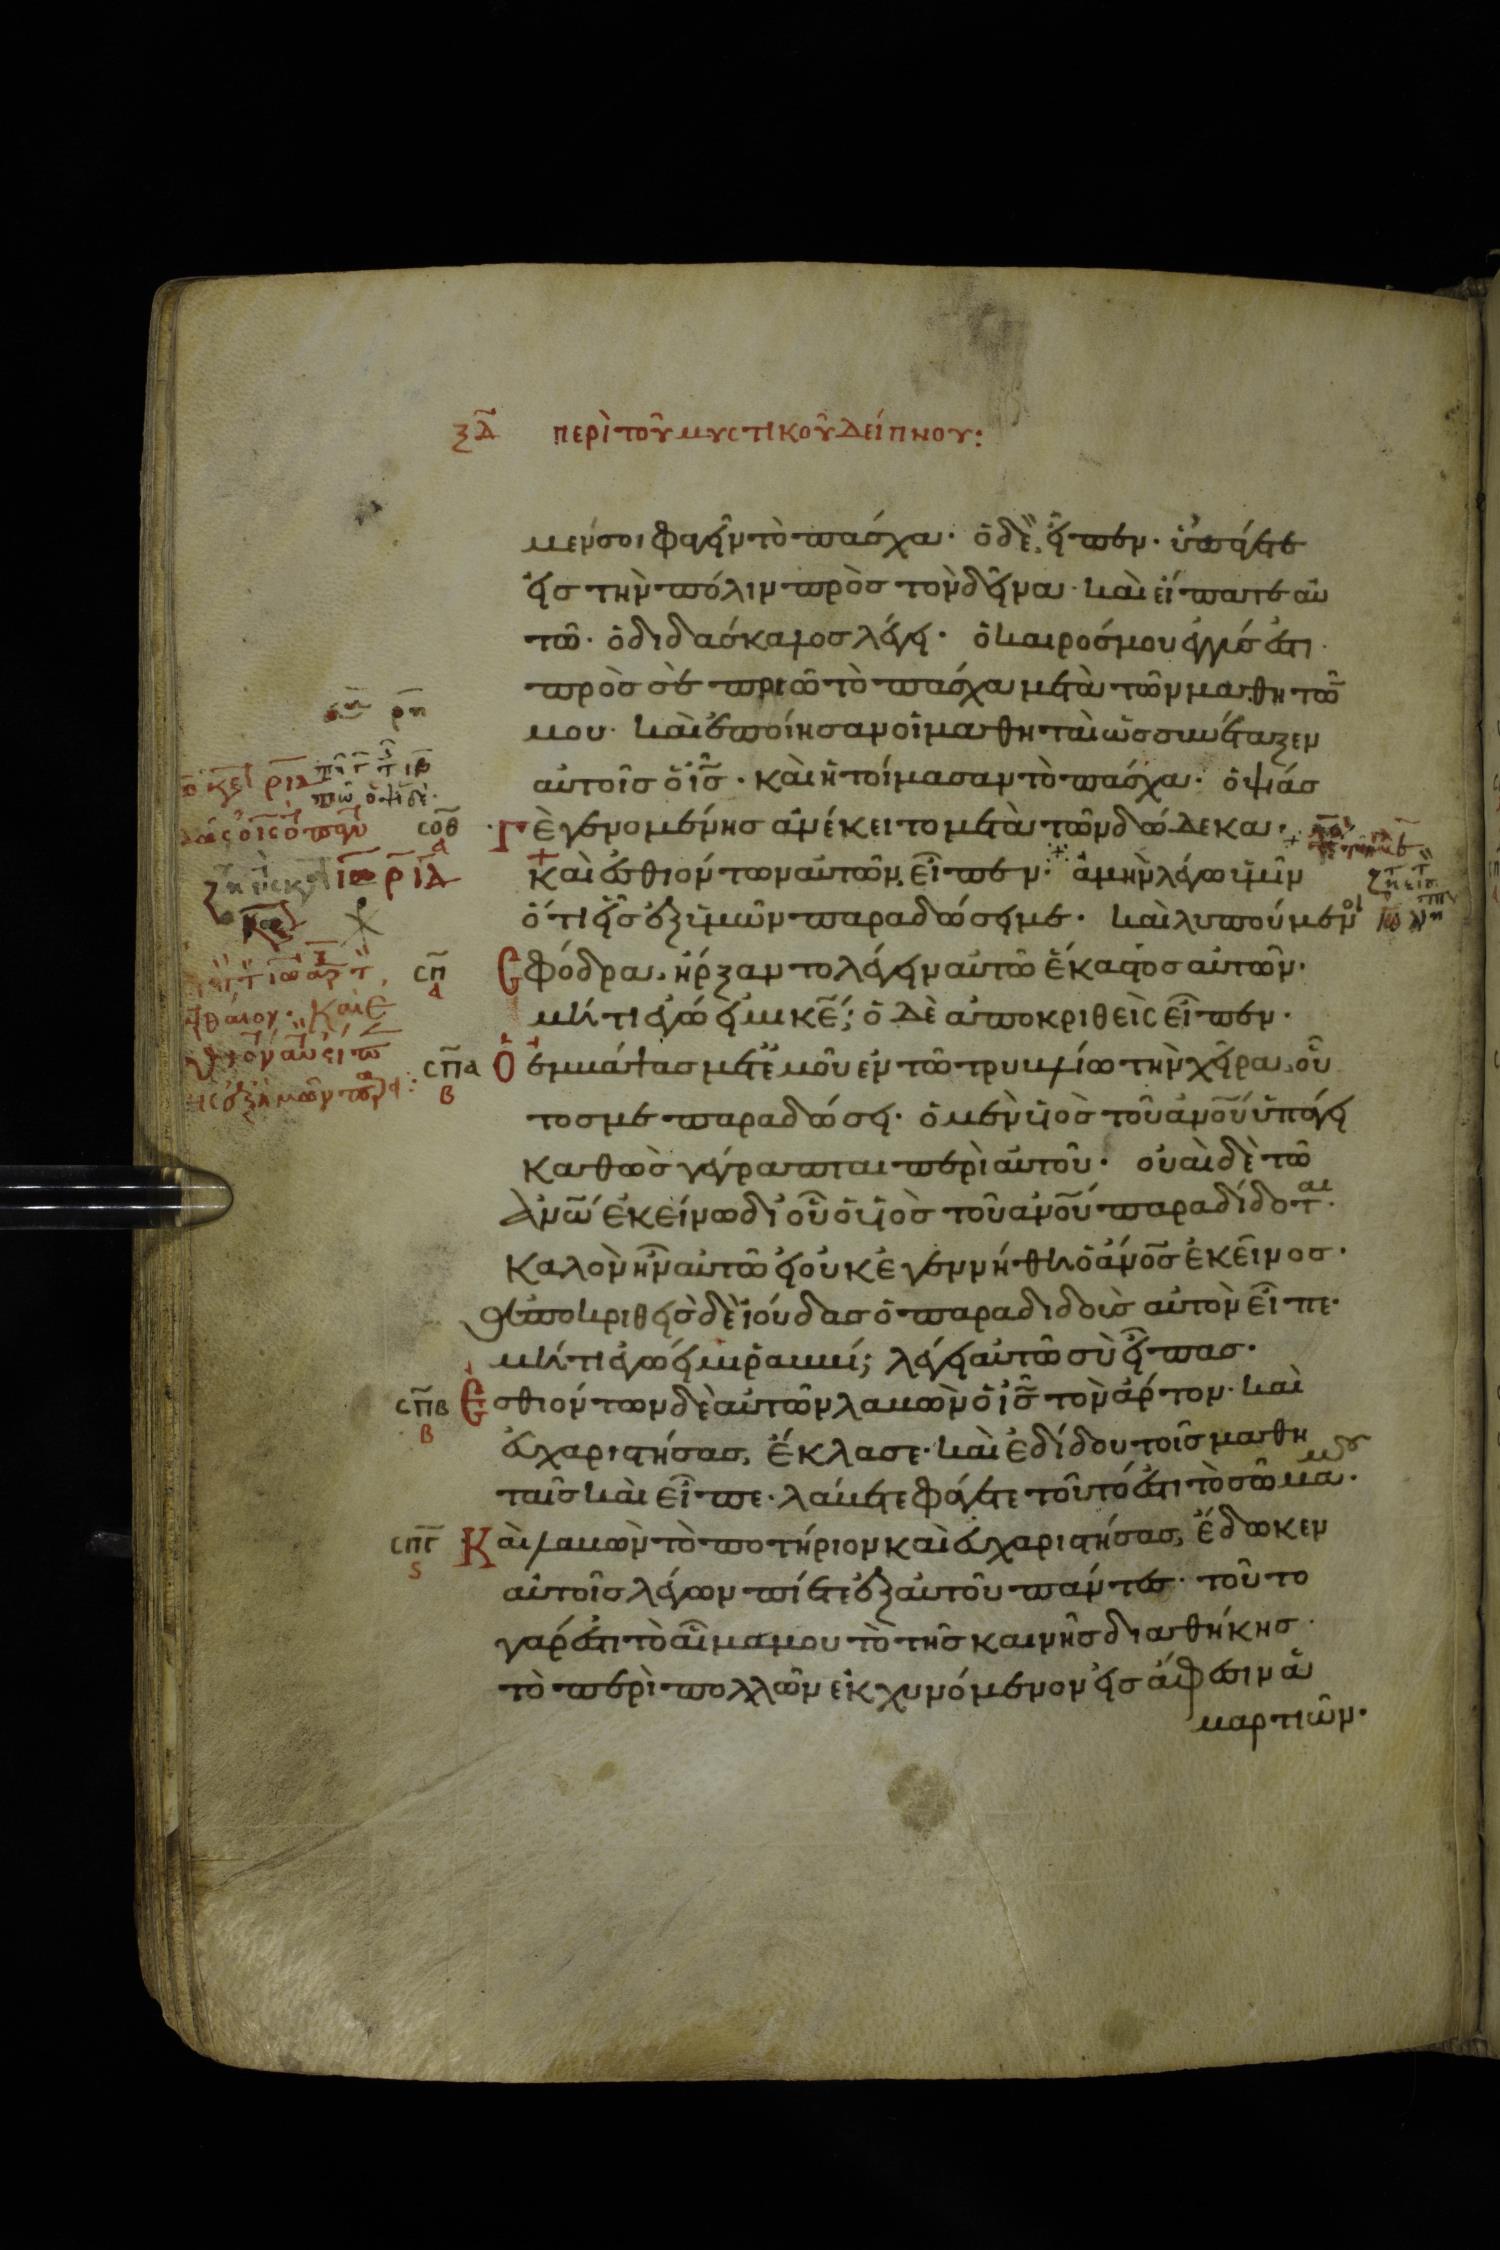 ξδ περὶ τοῦ μυστικοῦ δείπνου:
μεν σοι φαγεῖν τὸ πάσχα· ὁ δὲ εἶπεν· ὑπάγετε
εἰς τὴν πόλιν πρὸς τὸν δεῖνα· καὶ εἴπατε αὐ
τῶ· ὁ διδάσκαλος λέγει· ὁ καιρός μου ἐγγύς ἐστι·
πρὸς σὲ ποιῶ τὸ πάσχα μετὰ τῶν μαθητῶ̅
μου· καὶ ἐποίησαν οἱ μαθηταὶ ὡς συνέταξεν
αὐτοῖς ὁ ις̅· καὶ ἡτοίμασαν τὸ πάσχα· ὀψίας
σοθ δ
Γ δὲ γενομένης ἀνέκειτο μετὰ τῶν δώδεκα·
καὶ ἐσθιόντων αὐτῶν, εἶπεν· ἀμὴν λέγω ὑμῖν
ὅτι εἷς ἐξ ὑμῶν παραδώσει με· καὶ λυπούμενοι
σπ δ
Σφόδρα, ἤρξαντο λέγειν αὐτῶ ἕκαστος αὐτῶν·
μήτι ἐγώ εἰμι κε̅; ὁ δὲ ἀποκριθεὶς εἶπεν·
σπα β
Ὁ ἐμβάψας μετ' ἐμοῦ ἐν τῶ τρυβλίω τὴν χεῖρα, οὗ
τος με παραδώσει· ὁ μὲν υἱὸς τοῦ ἀνου̅ ὑπάγει
καθὼς γέγραπται περὶ αὐτοῦ· οὐαὶ δὲ τῶ
ἀνω̅ ἐκείνω δι' οὗ ὁ υἱὸς τοῦ ἀνου̅ παραδίδοται·
καλὸν ἦν αὐτῶ εἰ οὐκ ἐγεννήθη ὁ ἀνος̅ ἐκεῖνος·
ἀποκριθεὶς δὲ ἰούδας ὁ παραδιδοὺς αὐτὸν εἶπε·
μήτι ἐγώ εἰμι ῥαββί; λέγει αὐτῶ σὺ εἶπας·
σπβ β
Ἐσθιόντων δὲ αὐτῶν λαβὼν ὁ ις̅ τὸν ἄρτον· καὶ
εὐχαριστήσας, ἔκλασε· καὶ ἐδίδου τοῖς μαθη
ταῖς καὶ εἶπε· λάβετε φάγετε τοῦτό ἐστι τὸ σῶμά μου·
σπγ ς
Καὶ λαβὼν τὸ ποτήριον καὶ εὐχαριστήσας, ἔδωκεν
αὐτοῖς λέγων πίετε ἐξ αὐτοῦ πάντες· τοῦτο
γάρ ἐστι τὸ αἷμα μου τὸ τῆς καινῆς διαθήκης·
τὸ περὶ πολλῶν ἐκχυνόμενον εἰς ἄφεσιν ἁ
μαρτιῶν·